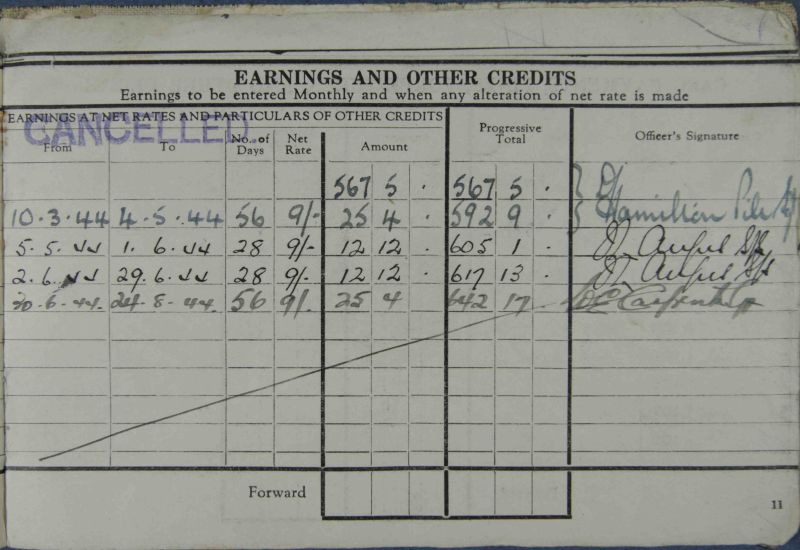 EARNINGS AND OTHER CREDITS
Earnings to be entered Monthly and when any alteration of net rate is made
EARNINGS AT NET RATES AND PARTICULARS OF OTHER CREDITS
CANCELLED
From To No. of Days Net Rate Amount Progressive Total Officer's Signature
567 5 . 567 5 .
10.3.44 4.5.44 56 9/- 25 4 592 9 . Hamilton
5.5.44 1.6.44 28 9/- 12 12 . 605 1 .
2.6.44 29.6.44 28 9/- 12 12 . 617 13 .
30.6.44. 24.8.44. 56 9/- 25 4 642 17 .
Forward
11